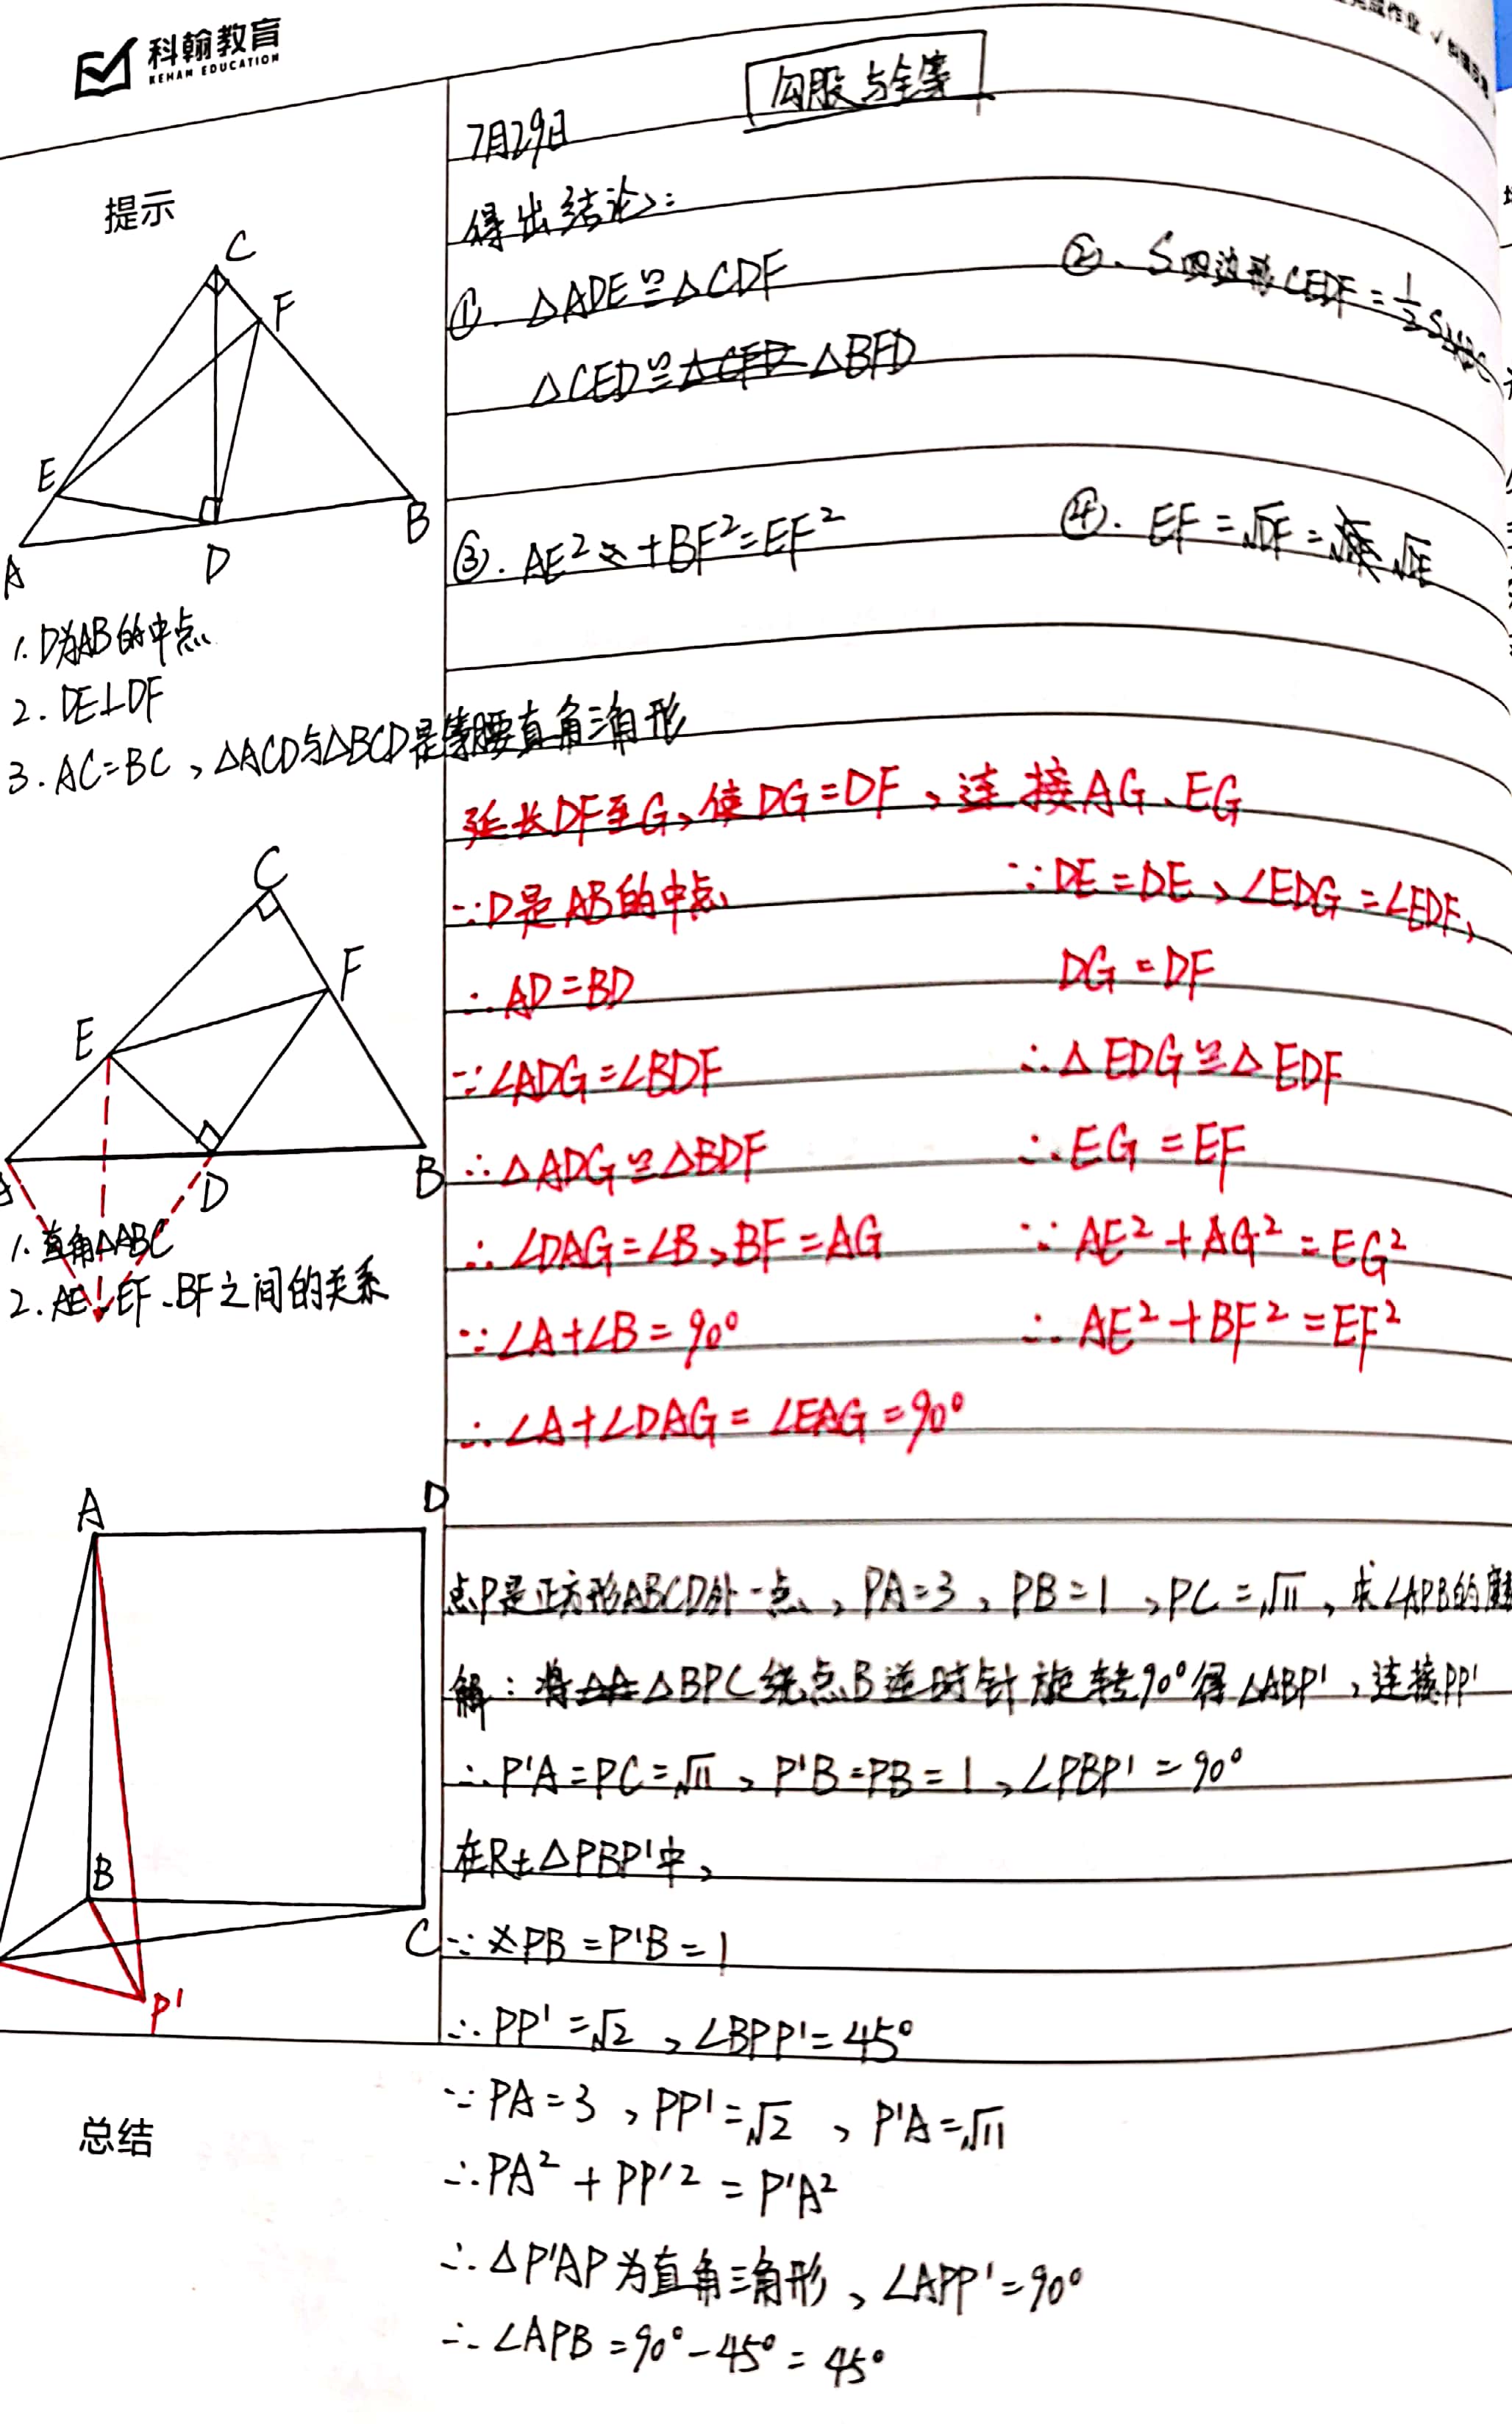 科翰教育
KEHAN EDUCATION
勾股与全等
7月29日
提示
得出结论:
①. △ADE≌△CDF
②. S四边形CEDF=½S△ABC
△CED≌△BFD
③. AE²+BF²=EF²
④. EF=√DF=√DE
C
F
E
A
D
B
1. D为AB的中点
2. DE⊥DF
3. AC=BC,△ACD与△BCD是等腰直角三角形
延长DF至G,使DG=DF,连接AG、EG
∵D是AB的中点
∵DE=DE,∠EDG=∠EDF,
∴AD=BD
DG=DF
∵∠ADG=∠BDF
∴△EDG≌△EDF
∴△ADG≌△BDF
∴EG=EF
∴∠DAG=∠B,BF=AG
∵AE²+AG²=EG²
∵∠A+∠B=90°
∴AE²+BF²=EF²
∴∠A+∠DAG=∠EAG=90°
C
F
E
D
B
1. 直角△ABC
2. AE、EF、BF之间的关系
A
D
B
C
P'
点P是正方形ABCD外一点,PA=3,PB=1,PC=√11,求∠APB的度
解:将△BPC绕点B逆时针旋转90°得△ABP',连接PP'
∴P'A=PC=√11,P'B=PB=1,∠PBP'=90°
在Rt△PBP'中,
∵PB=P'B=1
∴PP'=√2,∠BPP'=45°
总结
∵PA=3,PP'=√2,P'A=√11
∴PA²+PP'²=P'A²
∴△P'AP为直角三角形,∠APP'=90°
∴∠APB=90°-45°=45°